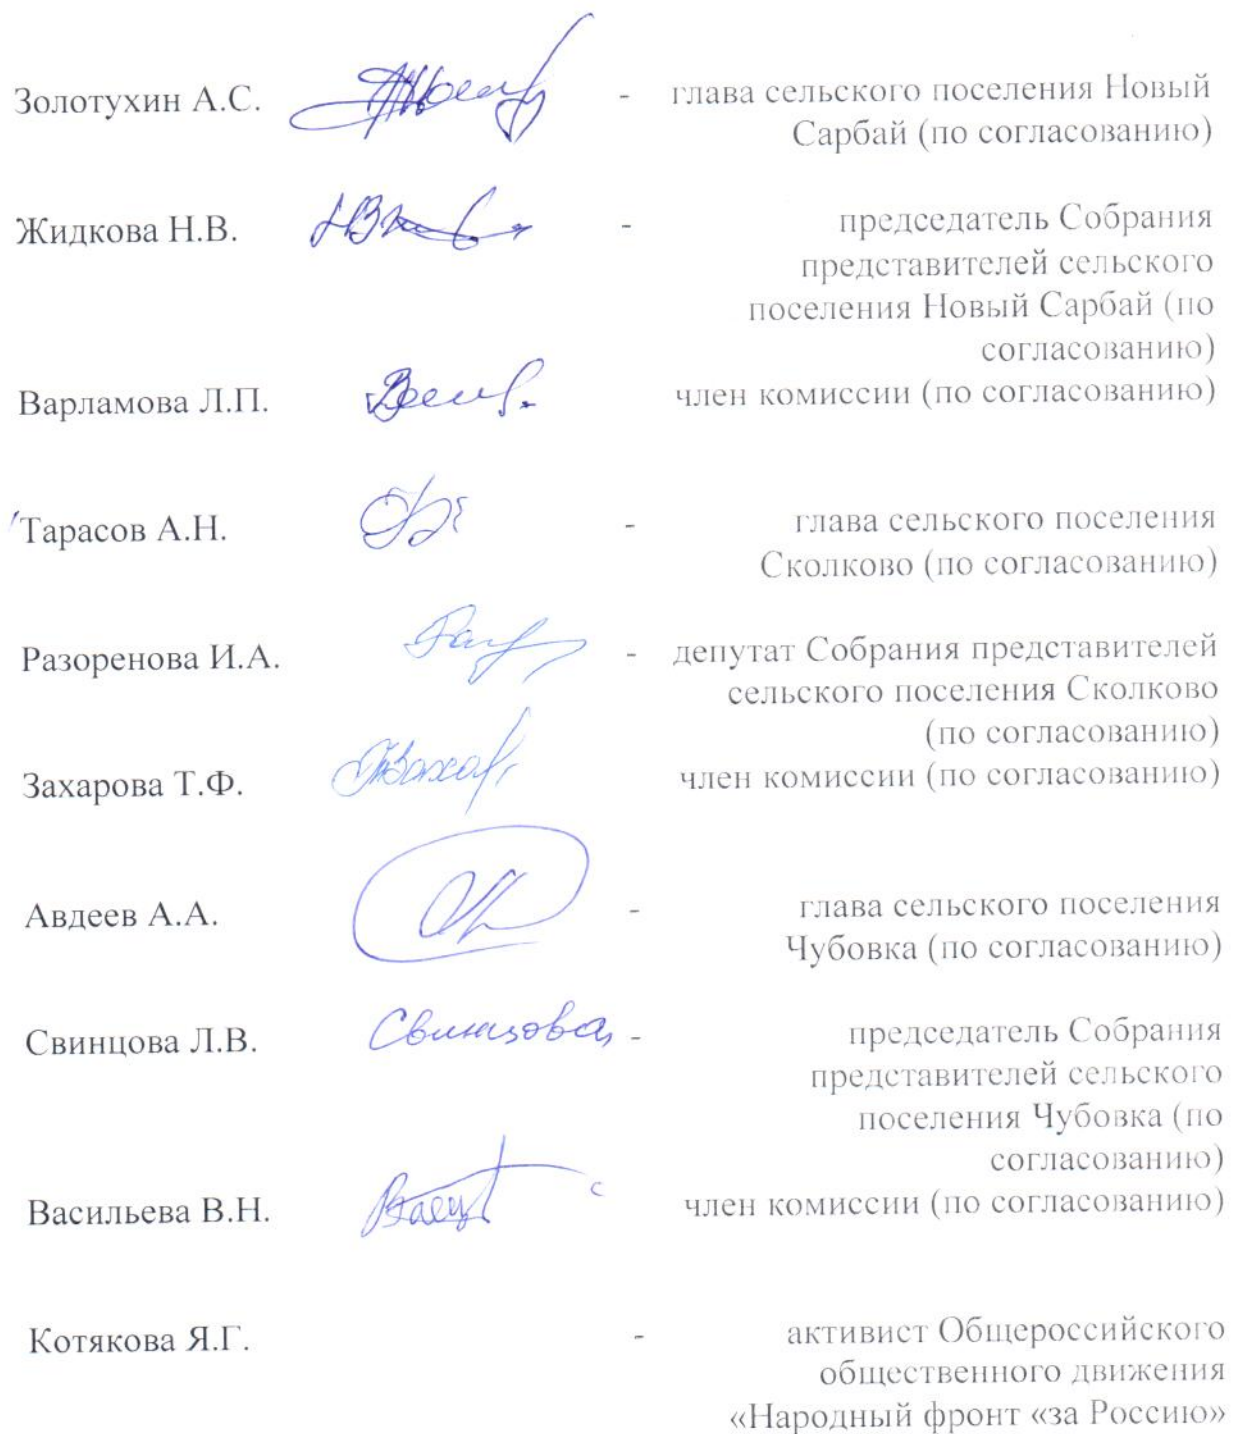 Золотухин А.С. - глава сельского поселения Новый
Сарбай (по согласованию)
Жидкова Н.В. - председатель Собрания
представителей сельского
поселения Новый Сарбай (по
согласованию)
Варламова Л.П. член комиссии (по согласованию)
Тарасов А.Н. - глава сельского поселения
Сколково (по согласованию)
Разоренова И.А. - депутат Собрания представителей
сельского поселения Сколково
(по согласованию)
Захарова Т.Ф. член комиссии (по согласованию)
Авдеев А.А. - глава сельского поселения
Чубовка (по согласованию)
Свинцова Л.В. Свинцова - председатель Собрания
представителей сельского
поселения Чубовка (по
согласованию)
Васильева В.Н. член комиссии (по согласованию)
Котякова Я.Г. - активист Общероссийского
общественного движения
«Народный фронт «за Россию»